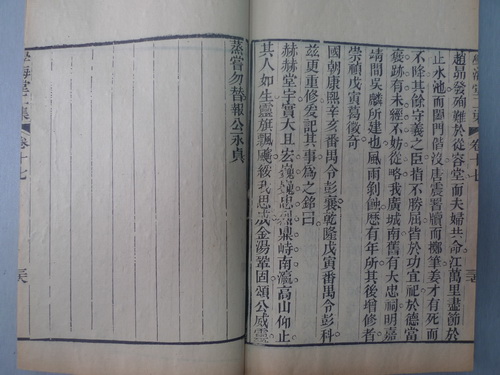 學海堂二集 卷十七
趙朝發殉難於從容堂而夫婦共命江萬里盡節於
止水池而闔門偕沒唐震署牘而擲筆姜才有死而
不降其餘守義之臣指不勝屈皆於功宜祀於德當
褒跡有未經不妨從略我廣城南舊有大忠祠明嘉
靖間吳麟所建也風雨剝蝕歷有年所其後增修者
崇禎戊寅葛徵奇
國朝康熙辛亥番禺令彭襄乾隆戊寅番禺令彭科
茲更重修爰記其事為之銘曰
赫赫堂宇實大且宏巍巍忠烈鼎峙南瀛高山仰止
其人如生靈旗飄颻綏我思成金湯鞏固頌公威靈
蒸嘗勿替報公永貞
學海堂二集 卷十七